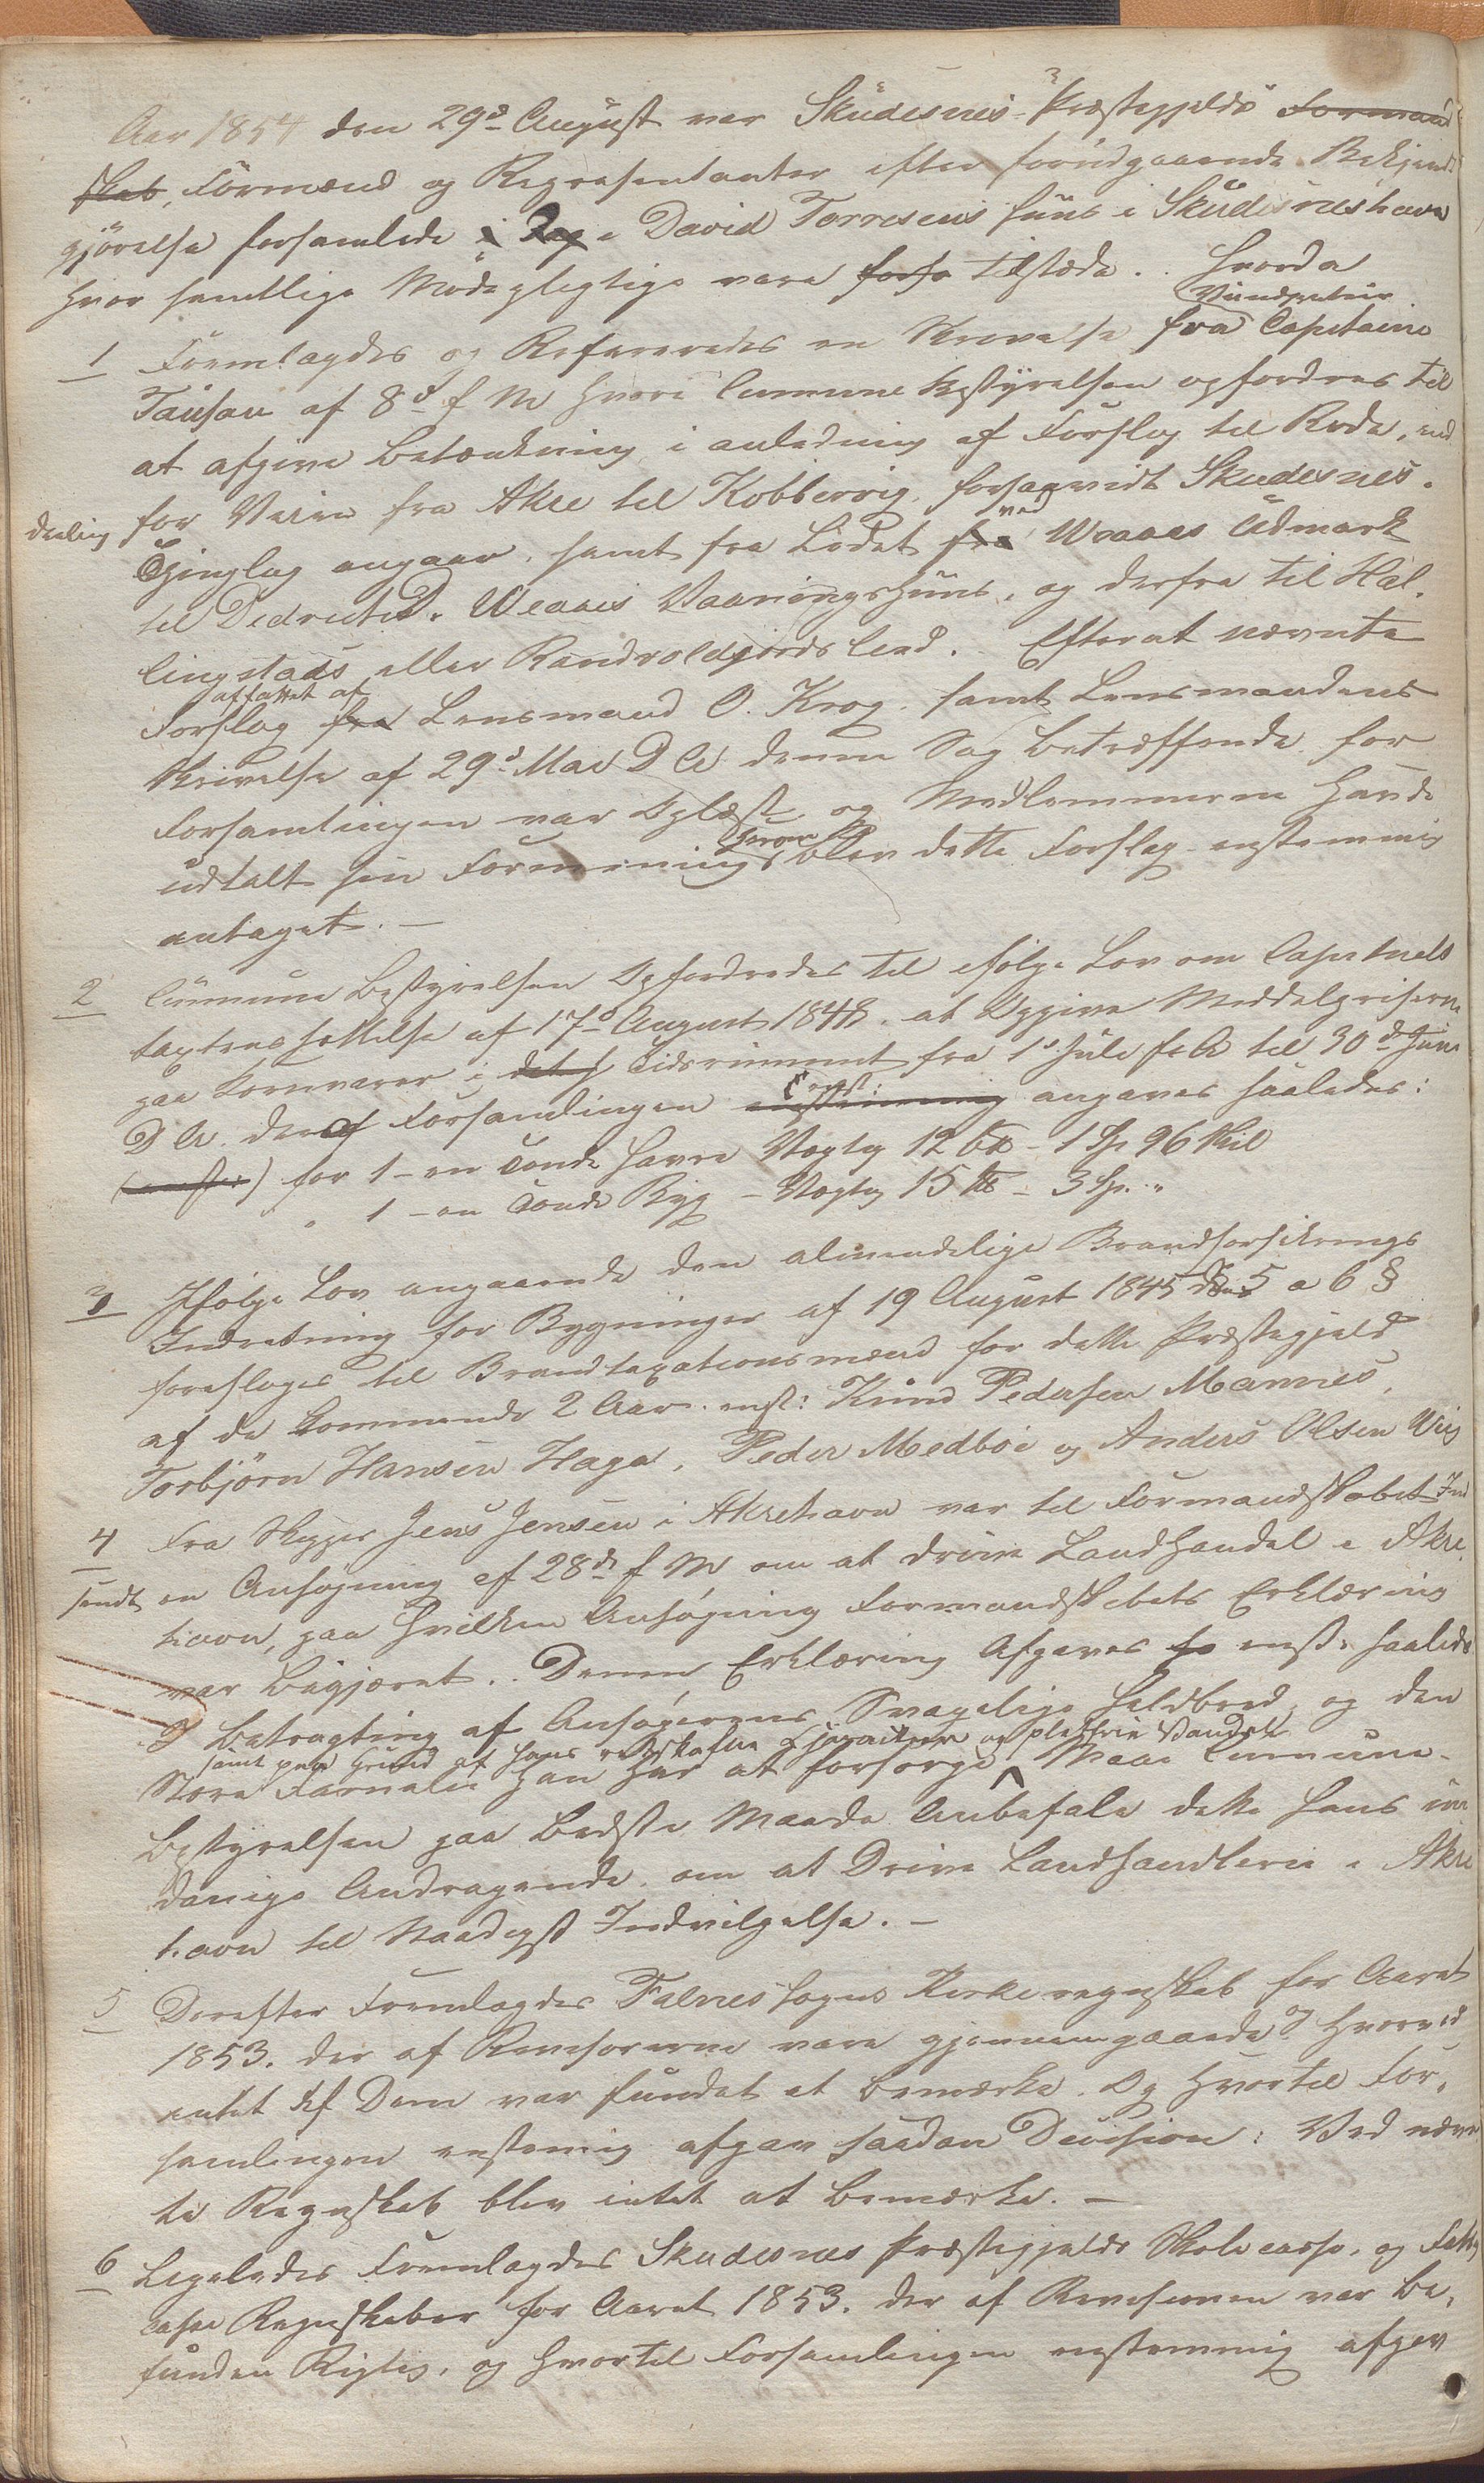 Aar 1854 den 29d August var Skudesnes Præstegjelds Formand
skab, Formænd og Repræsentanter efter forudgaaende Bekjendt
gjørelse forsamlede i David Torresens Huus i Skudesneshavn
hvor samtlige Mødepligtige vare forsa tilstæde. Hvorda
1 Fremlagdes og Refereredes en Skrivelse fra Capitaine
Tausan af 8d f M hvori Commune bestyrelsen opfordres til
at afgive Betænkning i anledning af Forslag til Rode, ind
deeling for Veien fra Akre til Kobbervig, forsaavidt Skudesnes
Thinglag angaar, samt fra Lodet fra ved Weaaes Udmark
til Diedrich D. Weaaes Vaaningshuus, og derfra til Hel,
lingstads eller Randvoldgjerds Leed. Efterat nævnte
Forslag fra affattet af Lensmand O. Krog, samt Lensmandens
Skrivelse af 29d Mai D A denne Sag betræffende for
Forsamlingen var Oplæst og Medlemmerne havde
udtalt sin Formening, blev dette Forslag enstemmig
antaget. —
2 Commune Bestyrelsen Opfordredes til ifølge Lov om Capitels
taxtens settelse af 17d August 1848. at Opgive Middelpriserne
paa Kornvarer i det f Tidsrummet fra 1d Juli f A til 30d Juni
D A. der af Forsamlingen enstemmig enst: angaves saaledes:
for 1 – en Tønde Havre Vægtig 12 – 1 Sp 96 Skil
" 1 – en Tønde Byg – Vægtig 15 – 3 Sp. "
3 Ifølge Lov angaaende den alminddelige Brandforsikrings
Indretning for Bygninger af 19 August 1845 dens 5 a 6 §
foresloges til Brandtaxationsmænd for dette Præstegjeld
af de kommende 2 Aar. enst: Knud Pedersen Mannes,
Torbjørn Hansen Haga, Peder Medbøe og Anders Olsen Wiig
4 Fra Skipper Jens Jensen i Akrehavn var til Formandskabet Ind
sendt en Ansøgning af 28de f M om at drive Landhandel i Akre,
havn, paa hvilken Ansøgning Formandskabets Erklæring
var Begjæret. Denne Erklæring Afgaves fo enst. saaledes
I Betragtning af Ansøgerens Svagelige Helbred, og den
samt paa Grund af hans retskafne Charakteer og pletfrie Vandel
Store Familie han har at forsørge Maae Commune
bestyrelsen paa bedste Maade Anbefale dette hans un
danige Andragende om at Drive Landhandlerie i Akre
havn til Naadigst Indvilgelse. —
5 Derefter Fremlagdes Falnes Sogns Kirke regnskab for Aaret
1853. der af Revisorerne vare gjennemgaaede & hvorved
intet Af Dem var fundet at bemærke. Og hvortil For,
samlingen enstemig afgav saadan Decision: Ved nævn
te Regnskab blev intet at bemærke. —
6 Ligeledes Fremlagdes Skudesnes Præstegjelds Skole casse, og Fattig
casse Regnskaber for Aaret 1853. der af Revisionen var be,
funden Rigtig, og hvortil Forsamlingen enstemmig afgav